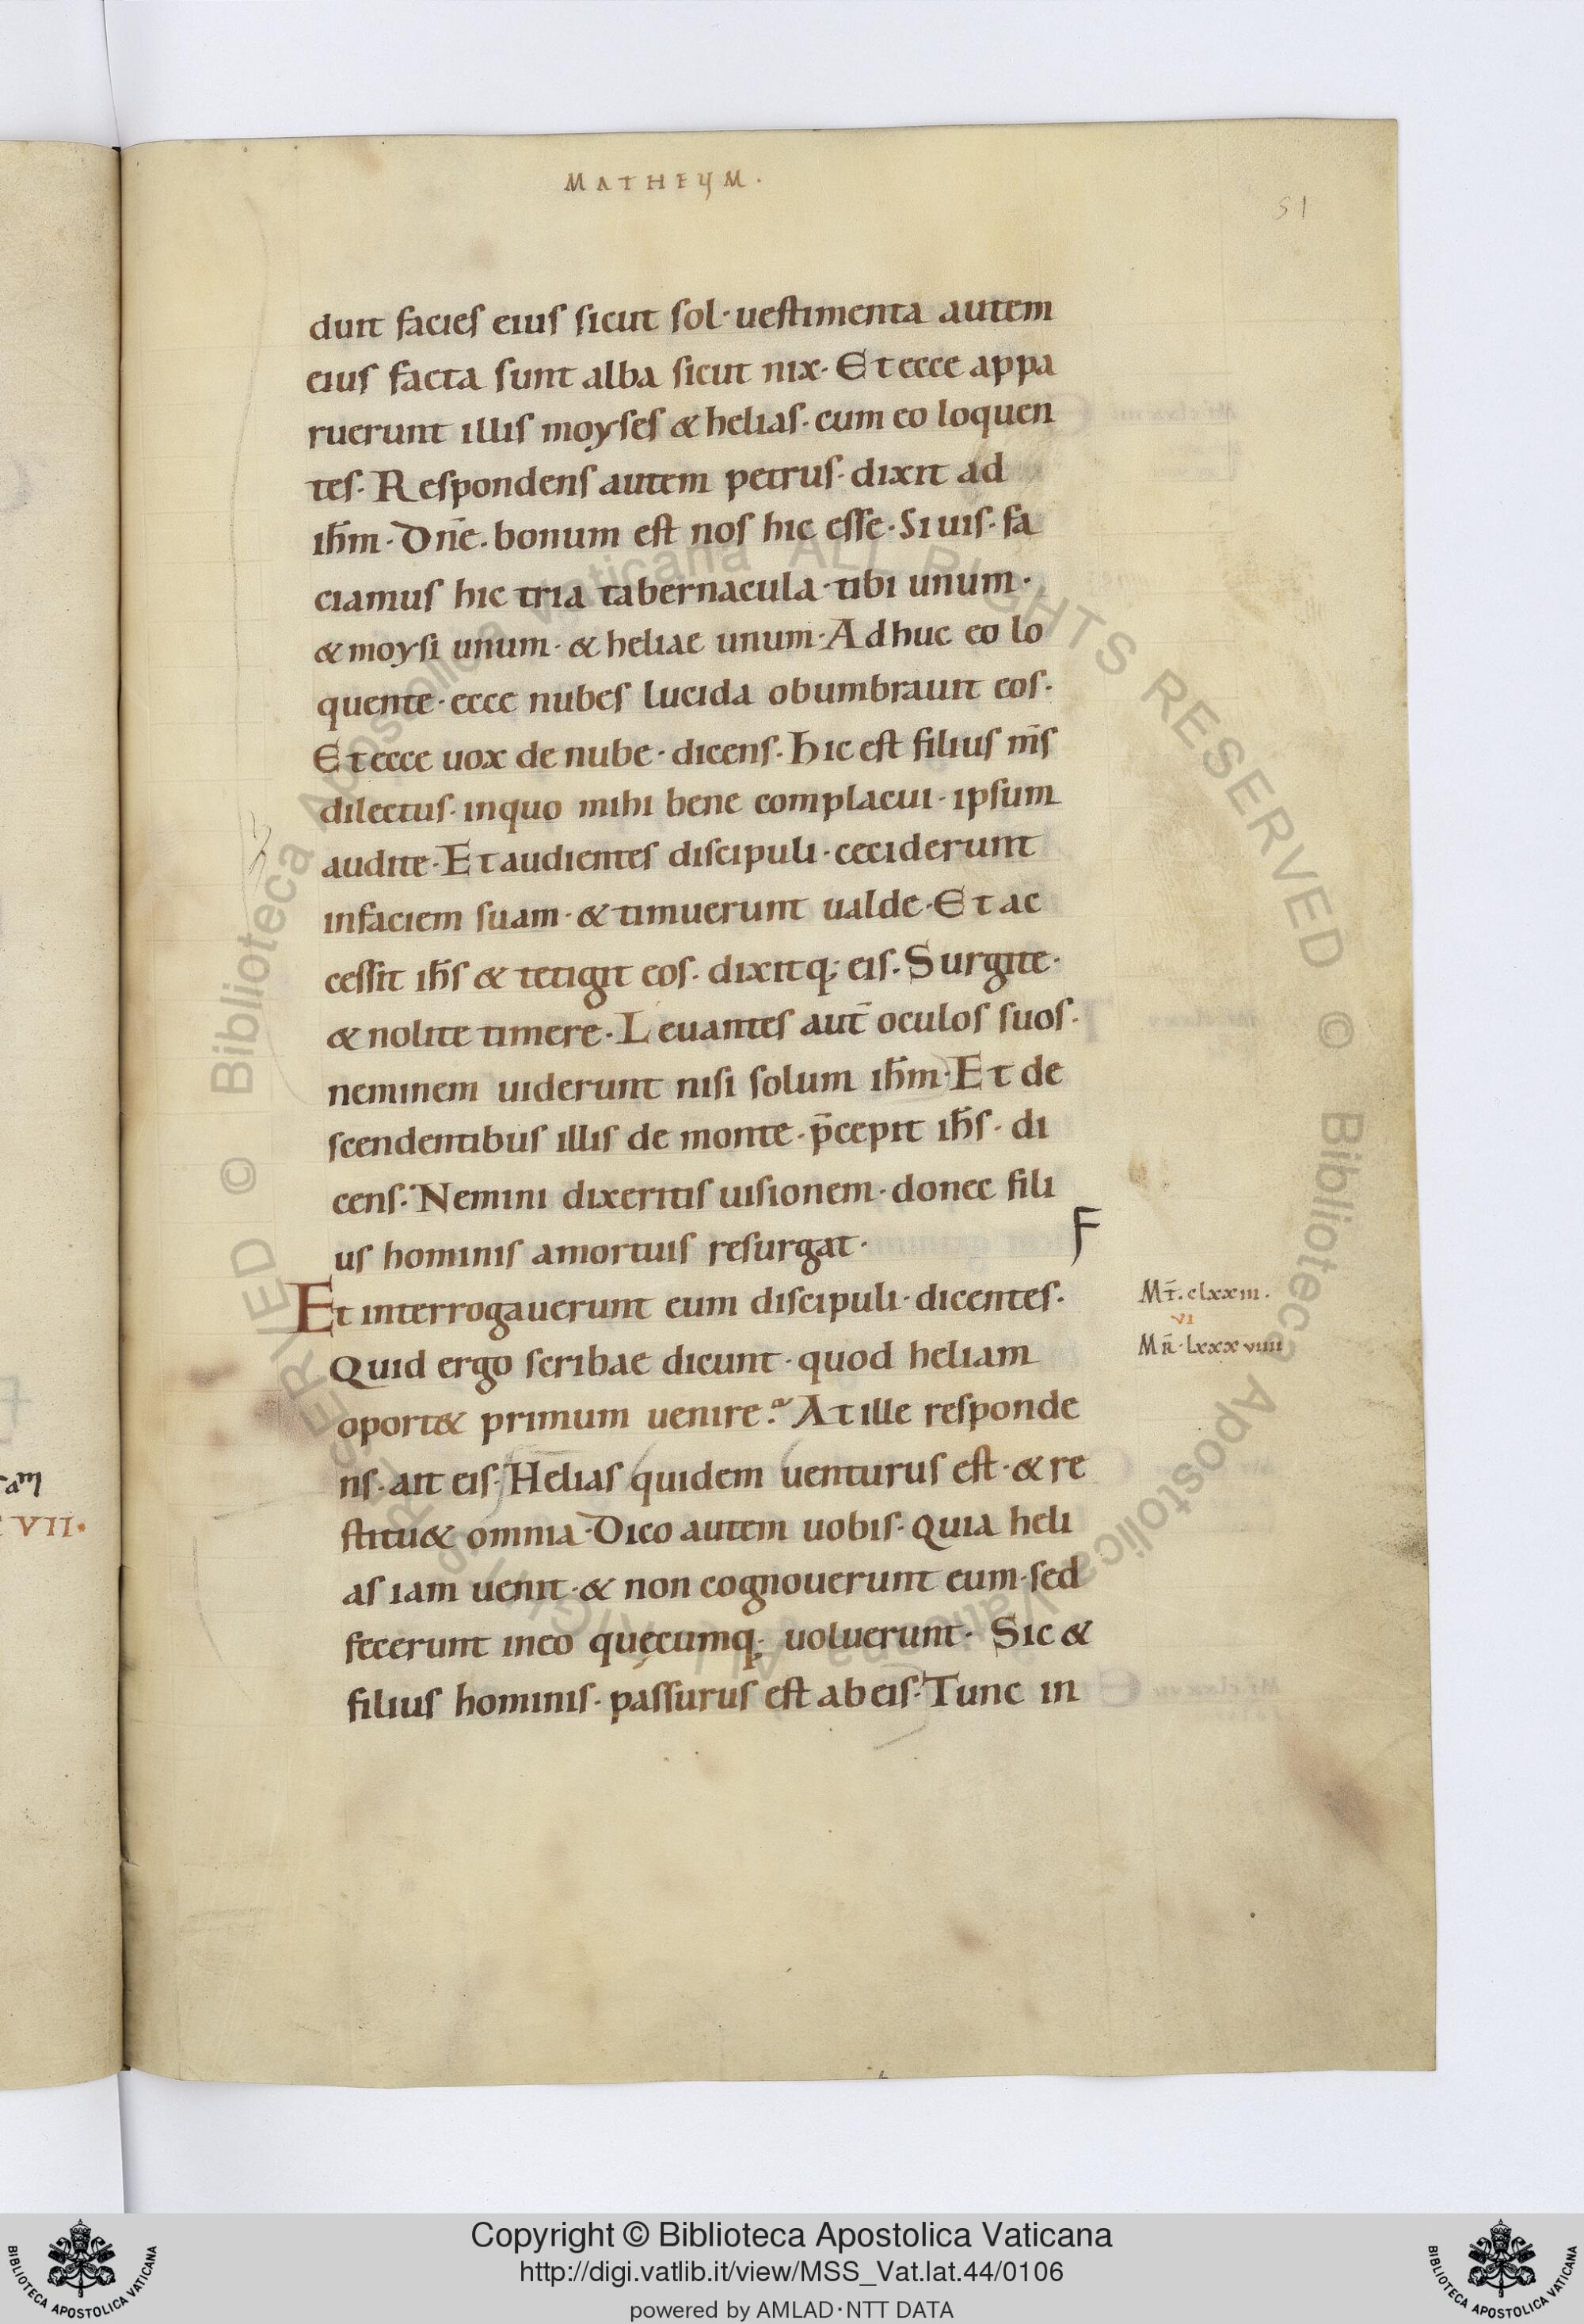 MATHEUM.
51
duit facies eius sicut sol· uestimenta autem
eius facta sunt alba sicut nix· Et ecce appa
ruerunt illis moyses & helias· cum eo loquen
tes· Respondens autem petrus· dixit ad
ih̄m· Dn̄e· bonum est nos hic esse· Si uis· fa
ciamus hic tria tabernacula· tibi unum·
& moysi unum· & heliae unum· Adhuc eo lo
quente· ecce nubes lucida obumbrauit eos·
Et ecce uox de nube· dicens· Hic est filius m̄s
dilectus· inquo mihi bene complacui· ipsum
audite· Et audientes discipuli· ceciderunt
infaciem suam· & timuerunt ualde· Et ac
cessit ih̄s & tetigit eos· dixitq; eis· Surgite·
& nolite timere· Leuantes aut̄ oculos suos·
neminem uiderunt nisi solum ih̄m· Et de
scendentibus illis de monte· p̄cepit ih̄s· di
cens· Nemini dixeritis uisionem· donec fili
us hominis amortuis resurgat·
F
Et interrogauerunt eum discipuli· dicentes·
Mt̄. clxxiii.
VI
Quid ergo scribae dicunt· quod heliam
Mr̄· lxxxviiii
oport& primum uenire? At ille responde
ns· ait eis· Helias quidem uenturus est· & re
stitu& omnia· Dico autem uobis· Quia heli
as iam uenit· & non cognouerunt eum· sed
fecerunt ineo quęcumq; uoluerunt· Sic &
filius hominis· passurus est ab eis· Tunc in
am
VII·
© Biblioteca Apostolica Vaticana ALL RIGHTS RESERVED © Biblioteca Apostolica Vaticana ALL RIGHTS RESERVED
Copyright © Biblioteca Apostolica Vaticana
http://digi.vatlib.it/view/MSS_Vat.lat.44/0106
powered by AMLAD·NTT DATA
BIBLIOTECA APOSTOLICA VATICANA
BIBLIOTECA APOSTOLICA VATICANA